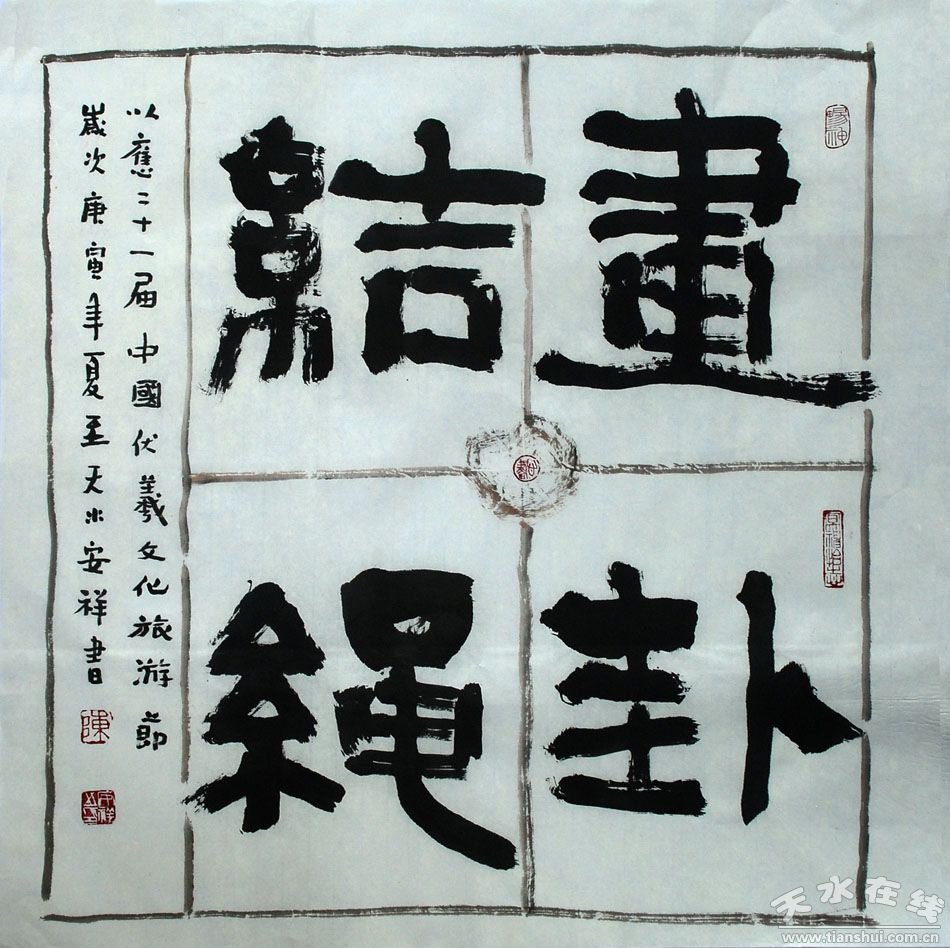 畫卦
結繩
以應二十一屆中國伏羲文化旅游節
歲次庚寅年夏至天水安祥書
陳
天水在线
www.tianshui.com.cn